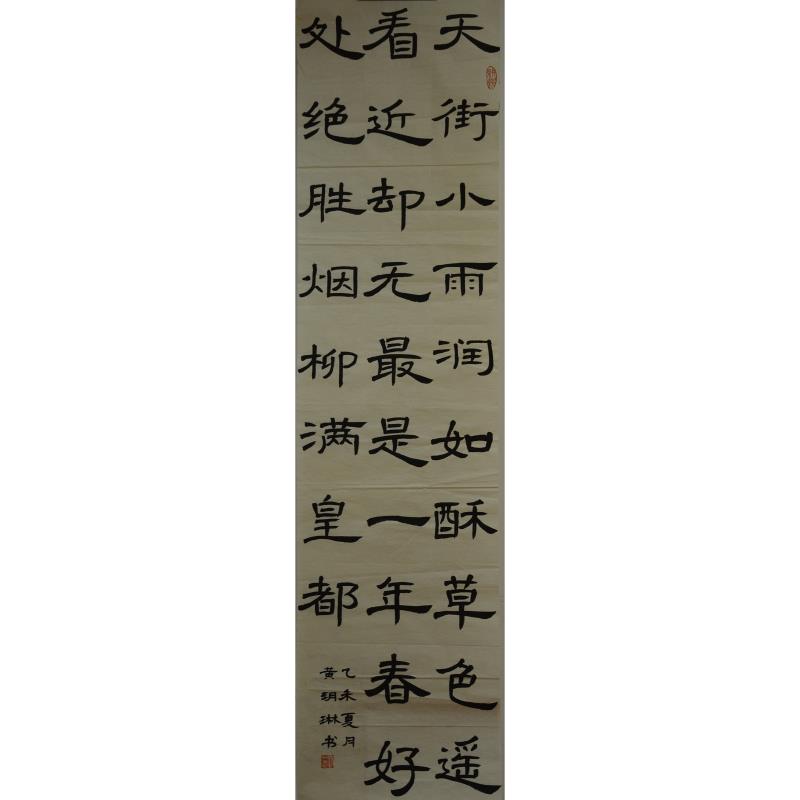 天街小雨润如酥草色遥
看近却无最是一年春好
处绝胜烟柳满皇都
乙未夏月
黄玥琳书